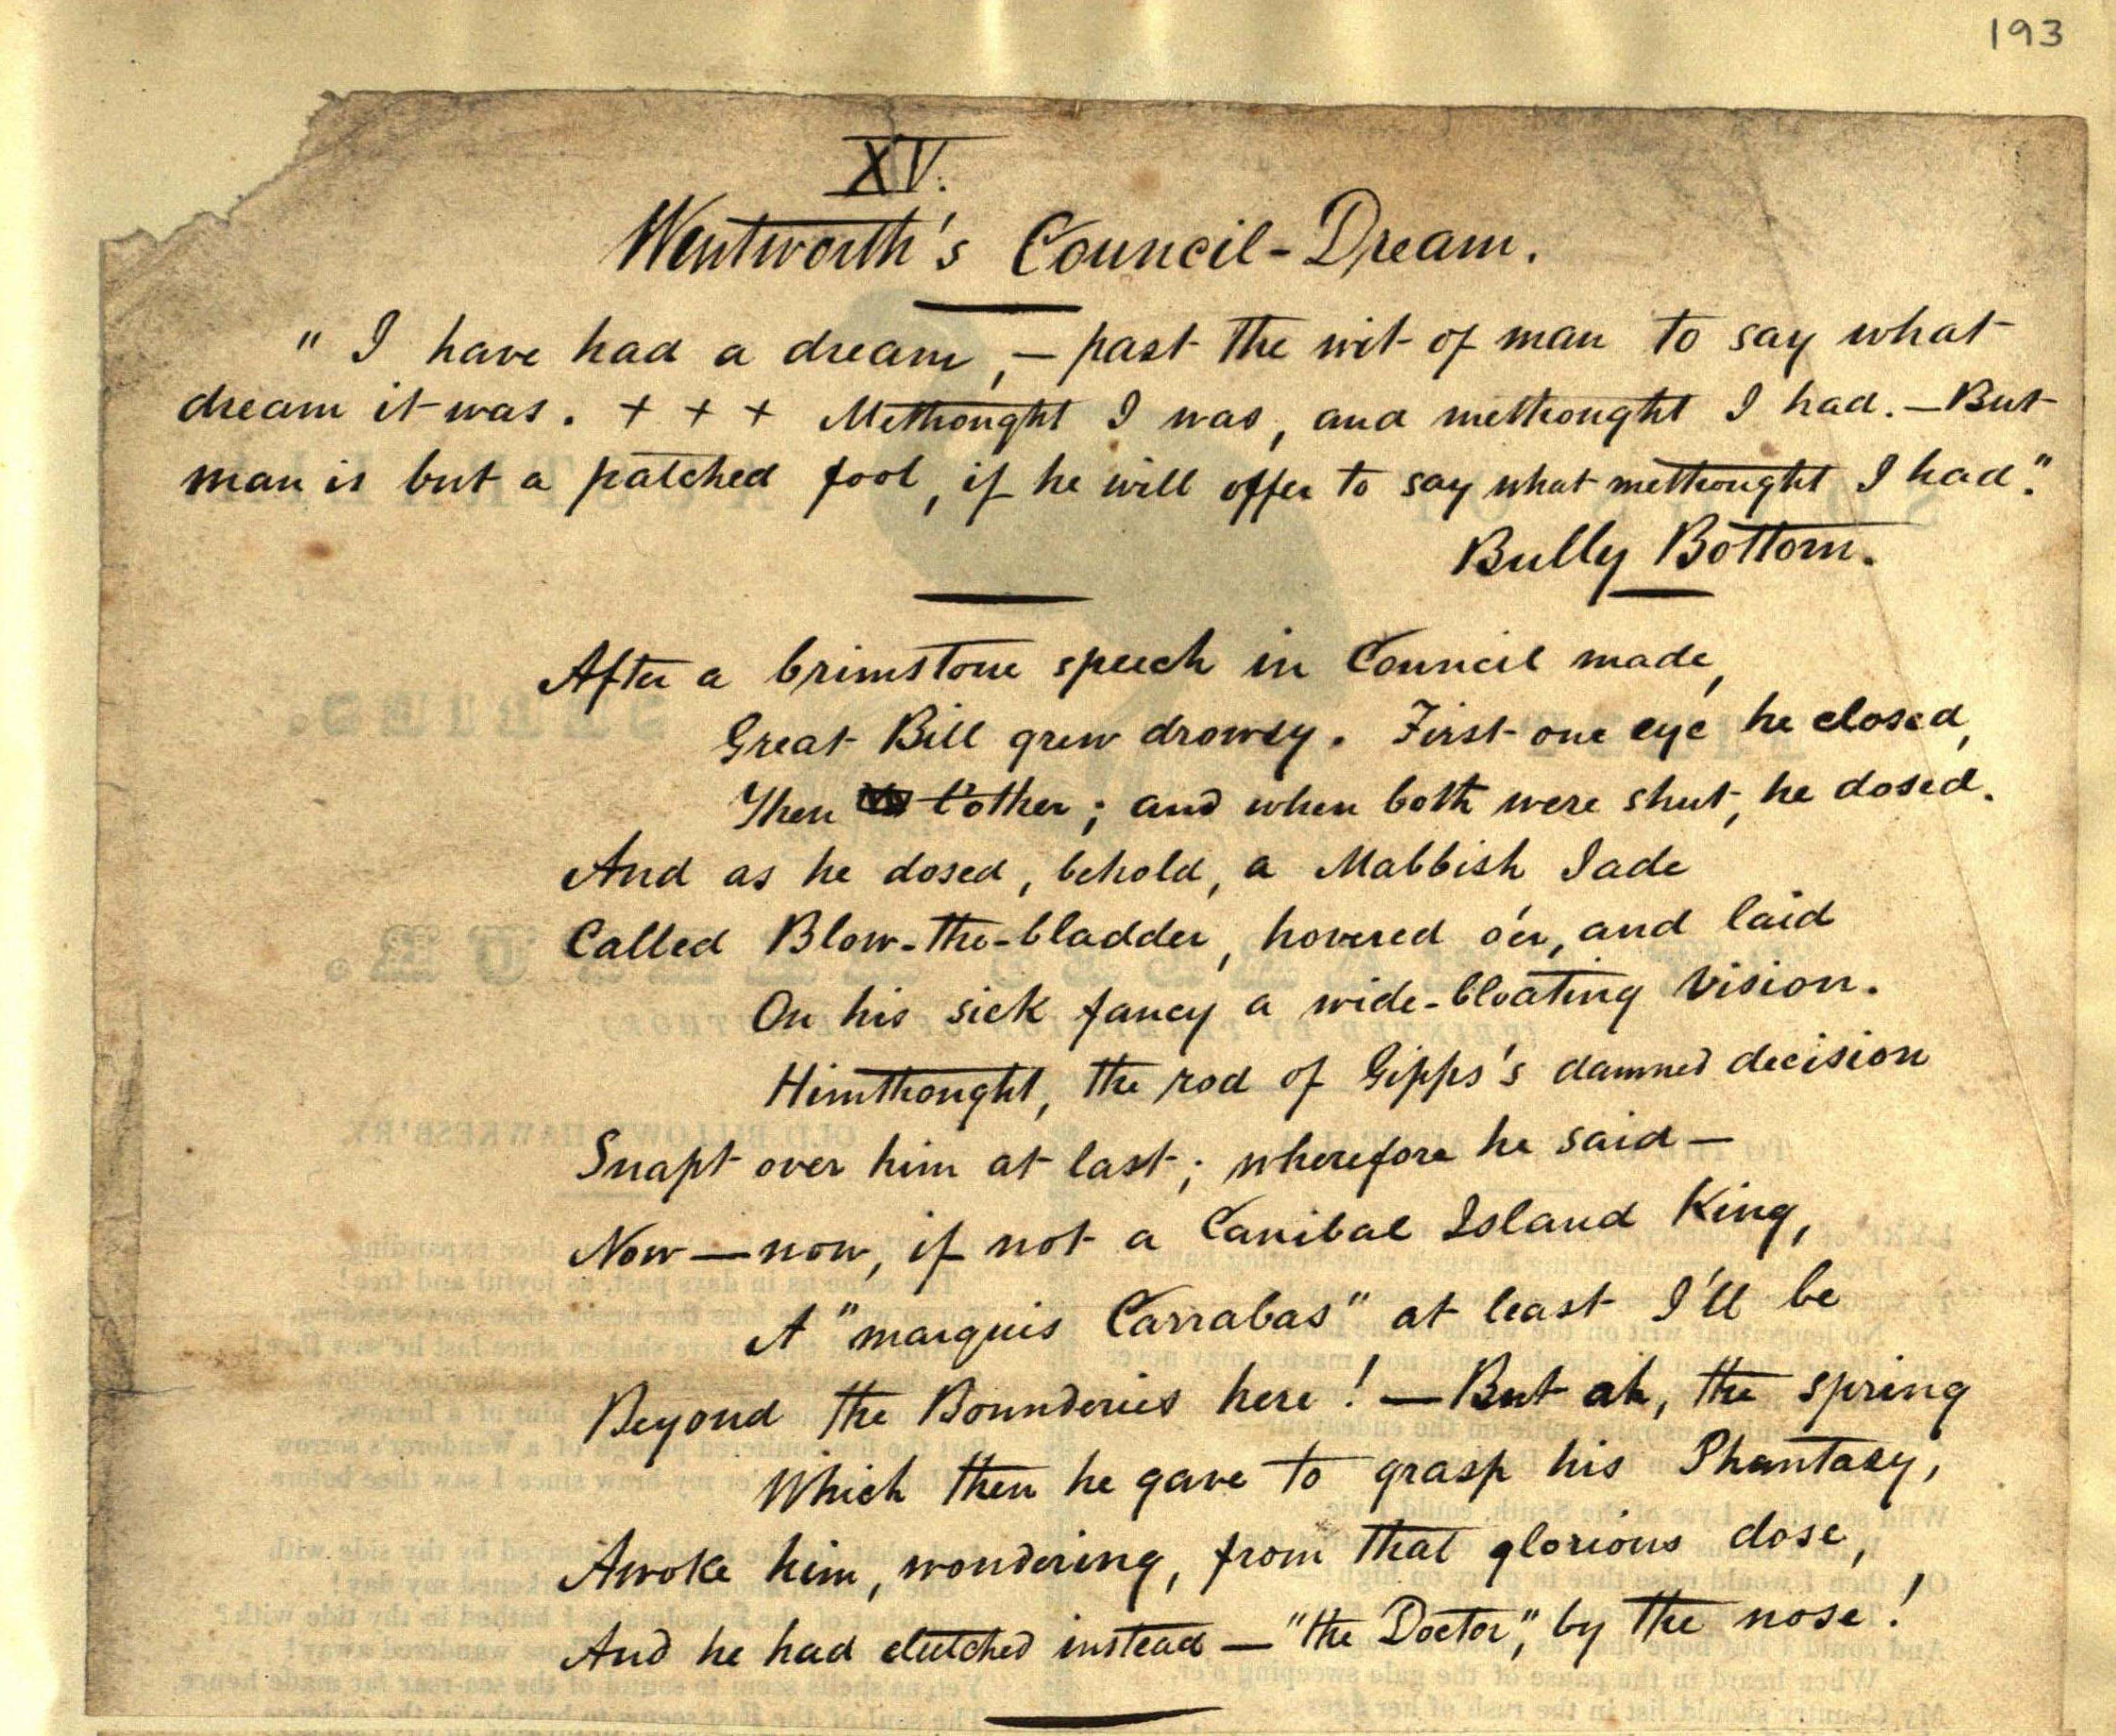 193
XV.
Wentworth's Council-Dream.
" I have had a dream, — past the wit of man to say what
dream it was. + + + Methought I was, and methought I had. — But
man is but a patched fool, if he will offer to say what methought I had."
Bully Bottom.
After a brimstone speech in Council made,
Great Bill grew drowsy. First one eye he closed,
Then t'other; and when both were shut, he dosed.
And as he dosed, behold, a Mabbish Jade
Called Blow-the-bladder, hovered o'er, and laid
On his sick fancy a wide-bloating vision.
Himthought, the rod of Gipps's damned decision
Snapt over him at last; wherefore he said —
Now — now, if not a Canibal Island King,
A "marquis Carrabas" at least I'll be
Beyond the Bounderies here! — But ah, the spring
Which then he gave to grasp his Phantasy,
Awoke him, wondering, from that glorious dose,
And he had clutched instead — "the Doctor", by the nose!
SERIES.
OLD BILLOWY HAWKESB'RY